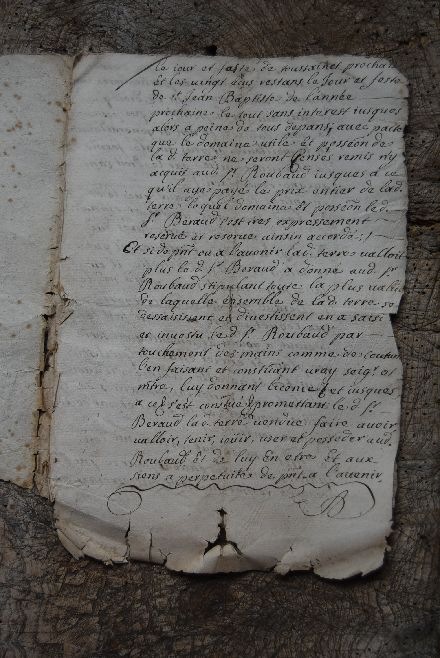 le jour et feste de toussainet prochan
et les vingt escus restans le jour et feste
de st Jean Baptiste de l'année
prochane le tout sans interest jusques
alors a peine de tous despans, avec pacte
que le domaine utile et possession de
la d. terre ne seront censés remis n'y
acquit aud. Sr. Roubaud jusques a ce
qu'il aye payé le prix entier de lad.
terre lequel domaine et possession led.
Sr. Beraud s'est tres expressement
reservé et reserve ainsin accordé
Et si de pnt ou a l'avenir lad. terre valloit
plus led. Sr. Beraud a donné aud. Sr.
Roubaud stipulant toute la plus value
de laquelle ensemble de lad. terre se
dessaisissent et divestissent en a saisi
et investu led. Sr. Roubaud par
touchement des mains comme de coutume
ben faisans et constituant vray seigr. et
mtre, luy donnant licence et jusques
a ce s'est constitué promettant led. Sr.
Beraud lad. terre vendue faire avoir,
valloir, tenir, jouir, user et posseder aud.
Roubaud et de luy en estre et aux
siens a perpetuité de pnt. a l'avenir
B